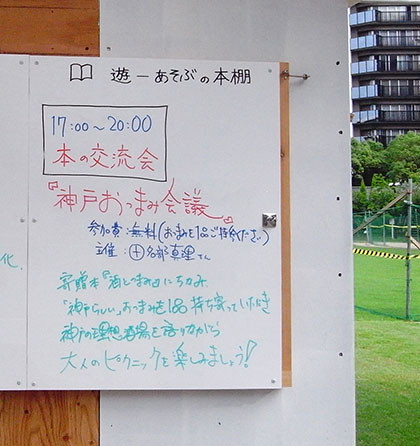 遊 — あそぶの本棚
17:00〜20:00
本の交流会
『神戸おつまみ会議』
参加費:無料(おつまみを1品ご持参ください)
主催:
真理さん
化、
寄贈本『酒とつまみ』にちなみ
「神戸らしい」おつまみを1品持ち寄っていただき
神戸の理想酒場を語りながら
大人のピクニックを楽しみましょう!